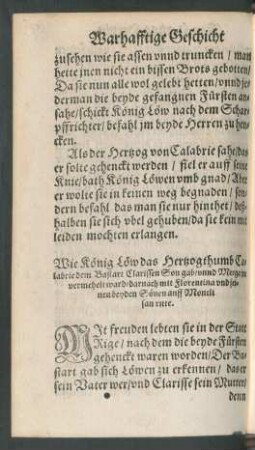 Warhafftige Geschicht
zusehen wie sie assen vnnd truncken / man
hette jnen nicht ein bissen Brots gebotten /
Da sie nun alle wol gelebt hetten / vnnd je-
derman die beyde gefangnen Fürsten an-
sahe / schickt König Löw nach dem Schar-
pffrichter / befahl jm beyde Herren zu hen-
cken.
Als der Hertzog von Calabrie sahe / das
er solte gehenckt werden / fiel er auff seine
Knie / bath König Löwen vmb gnad / Aber
er wolte sie in keinen weg begnaden / son-
dern befahl das man sie nur hin thet / deß-
halben sie sich vbel gehuben / da sie kein mit-
leiden mochten erlangen.
Wie König Löw das Hertzogthumb Ca-
labrie dem Bastart Clarissen Son gab / vnnd
vermehelt ward / darnach mit Florentina vnd je-
nen beyden Sönen auff Montli-
san rure.
MIt freuden lebten sie in der Statt
Rige / nach dem die beyde Fürsten
gehenckt waren worden / Der Ba-
start gab sich Löwen zu erkennen / das er
sein Vater wer / vnd Clarisse sein Mutter /
denn